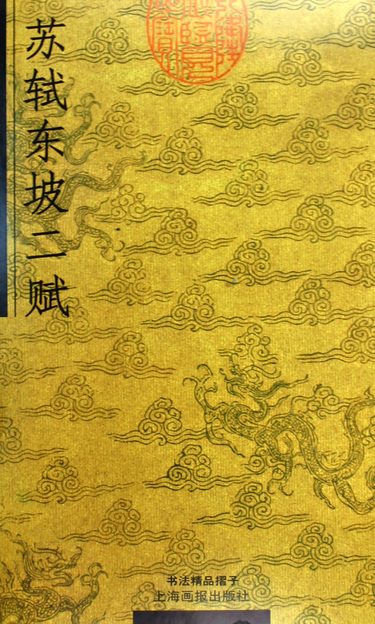 苏轼东坡二赋
书法精品摺子
上海画报出版社